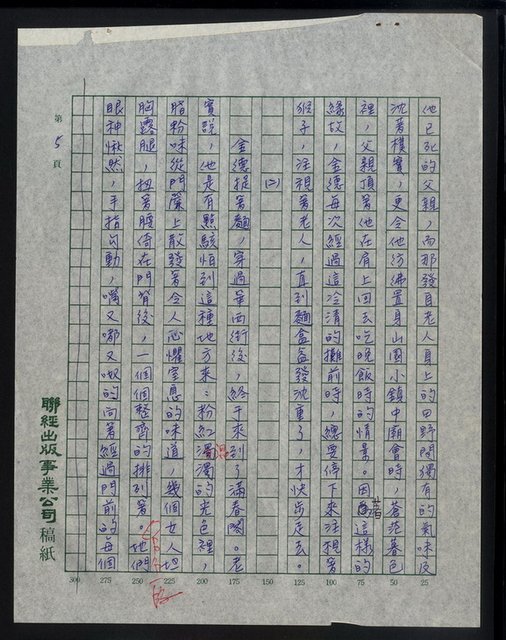 他已死的父親,而那發自老人身上的田野間獨有的氣味及
沈著樸實,更令他彷彿置身山園小鎮中廟會時,蒼茫暮色
裡,父親頂著他在肩上回去吃晚飯時的情景。因著這樣的
緣故,金德每次經過這冷清的攤前時,總要停下來注視著
猴子,注視著老人,直到麵盒益發沈重了,才快步走去。
(二)
金德提著麵,穿過華西街後,終于來到了滿春閣。老
實說,他是有點駭怕到這種地方來:粉紅濁濁的光色裡,
脂粉味從門簾上散發著令人恐懼窒息的味道,幾個女人坦
胸露腿,扭著腰倚在門背後,一個個整齊的排列著。她們
眼神愀然,手指勾動,嘴又嘟又噘的向著經過門前的每個
第 5 頁
聯經出版事業公司稿紙
25
50
75
100
125
150
175
200
225
250
275
300